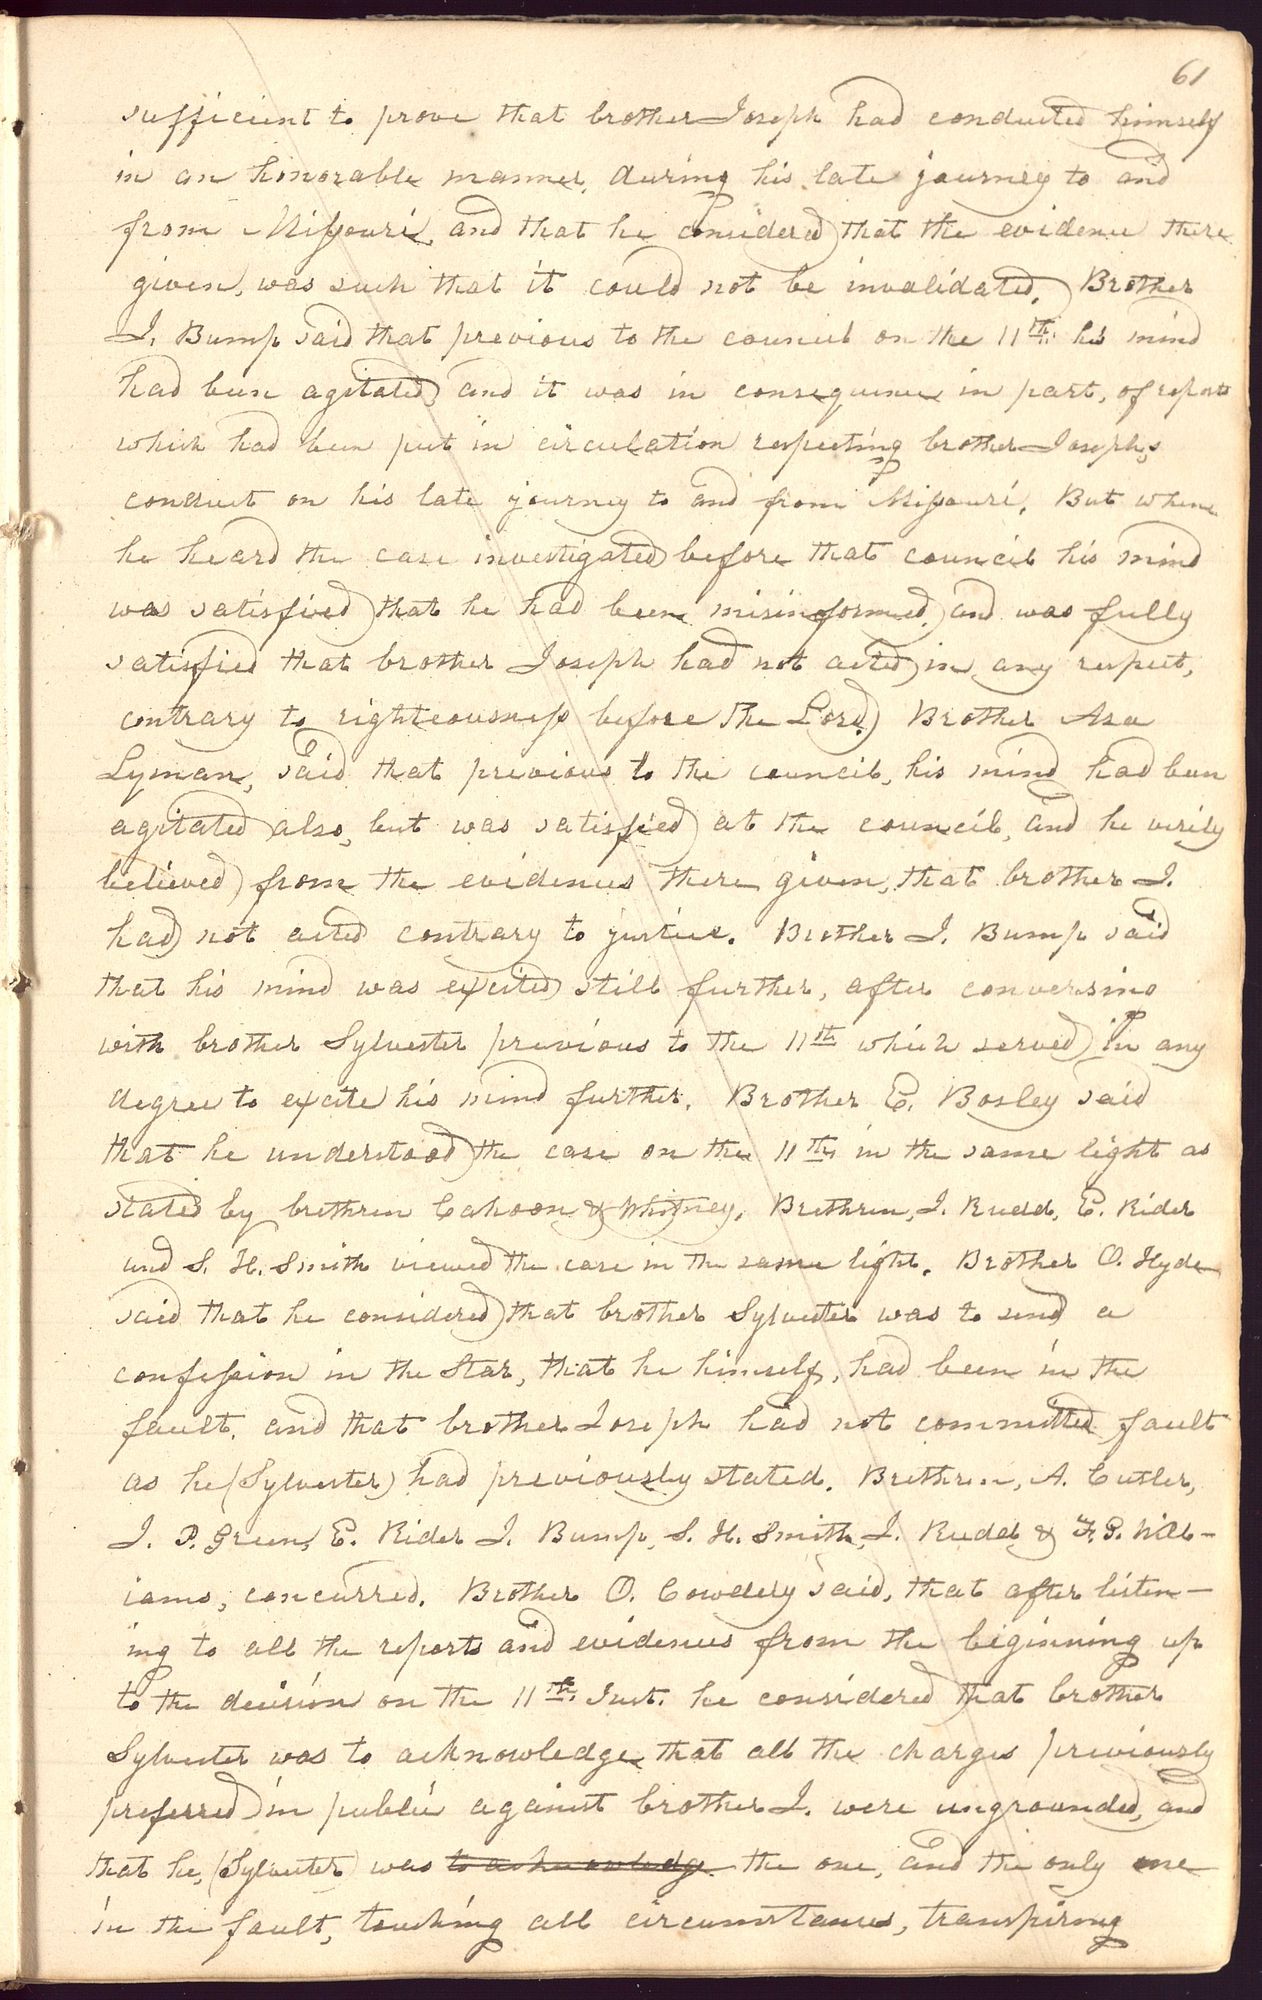 61
sufficient to prove that brother Joseph had conducted himself
in an honorable manner, during his late journey to and
from Missouri, and that he considered that the evidence there
given, was such that it could not be invalidated, Brother
J. Bump said that previous to the council on the 11th. his mind
had been agitated and it was in consequence in part, of reports
which had been put in circulation respecting brother Joseph,s
conduct on his late journey to and from Missouri. But when
he heard the case investigated before that council his mind
was satisfied that he had been misinformed, and was fully
satisfied that brother Joseph had not acted in any respect,
contrary to righteousness before the Lord. Brother Asa
Lyman, said that previous to the council, his mind had been
agitated also, but was satisfied at the council, and he verily
believed from the evidences there given, that brother J.
had not acted contrary to justice. Brother J. Bump said
that his mind was excited still further, after conversing
with brother Sylvester previous to the 11th which served in any
degree to excite his mind further. Brother E. Bosley said
that he understood the case on the 11th, in the same light as
stated by brethren Cahoon & Whitney, Brethren, J. Rudd, E. Rider
and S. H. Smith viewed the case in the same light. Brother O. Hyde
said that he considered that brother Sylvester was to send a
confession in the Star, that he himself, had been in the
fault, and that brother Joseph had not committed fault
as he (Sylvester) had previously stated. Brethren, A. Cutler,
J. P. Green, E. Rider J. Bump, S. H. Smith, J. Rudd & F. G. Will-
iams, concurred. Brother O. Cowdery said, that after listen-
ing to all the reports and evidences from the beginning up
to the decision on the 11th, Inst. he considered that brother
Sylvester was to acknowledge that all the charges previously
preferred in public against brother J. were ungrounded, and
that he, (Sylvester) was to acknowledge the one, and the only one
in the fault, touching all circumstances, transpiring